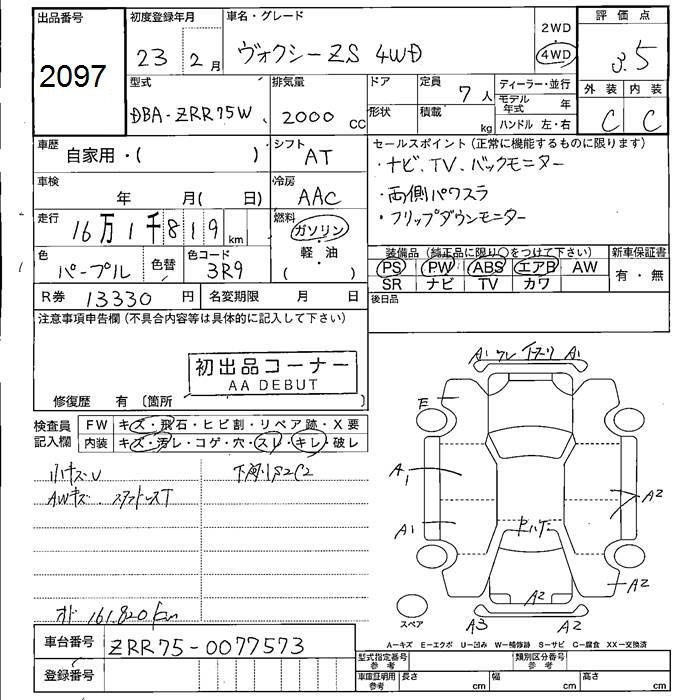 出品番号 初度登録年月 車名・グレード 2WD 評価点
2097 23年 2月 ヴォクシーZS 4WD 4WD 3.5
型式 排気量 ドア 定員 7人 ディーラー・並行 外装 内装
DBA-ZRR75W 2000 CC 形状 積載 kg モデル年式 年 C C
ハンドル 左・右
車歴 シフト セールスポイント(正常に機能するものに限ります)
自家用・( ) AT ・ナビ、TV、バックモニター
車検 冷房 ・両側パワスラ
年 月( 日) AAC ・フリップダウンモニター
走行 燃料
16万1千819 km ガソリン・軽油
色 色替 色コード ( ) 装備品(純正品に限り○をつけて下さい) 新車保証書
パープル 3R9 PS PW ABS エアB AW 有・無
SR ナビ TV カワ
R券 13330円 名変期限 月 日 後日品
注意事項申告欄(不具合内容等は具体的に記入して下さい)
初出品コーナー
AA DEBUT
修復歴 有 〔箇所 〕
検査員記入欄 FW キズ・飛石・ヒビ割・リペア跡・X要
内装 キズ・汚レ・コゲ・穴・スレ・キレ・破レ
小キズU
AWキズ
オド 161.820km
A1 A1
E
A1
A2
A1
A2
A2
A3 A2
スペア
A−キズ E−エクボ U−凹み W−補修跡 S−サビ C−腐食 XX−交換済
車台番号 ZRR75-0077573
登録番号
型式指定番号 参考 類別区分番号 参考
車庫証明用 参考 長さ cm 幅 cm 高さ cm